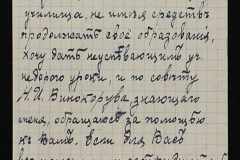 училища, не имѣя средствъ
продолжать своё образованія,
хочу дать неуспѣвающимъ уч
недорого уроки, и по совѣту
Н. И. Винокурова знающаго
меня, обращаюсь за помощью
къ Вамъ, если для Васъ